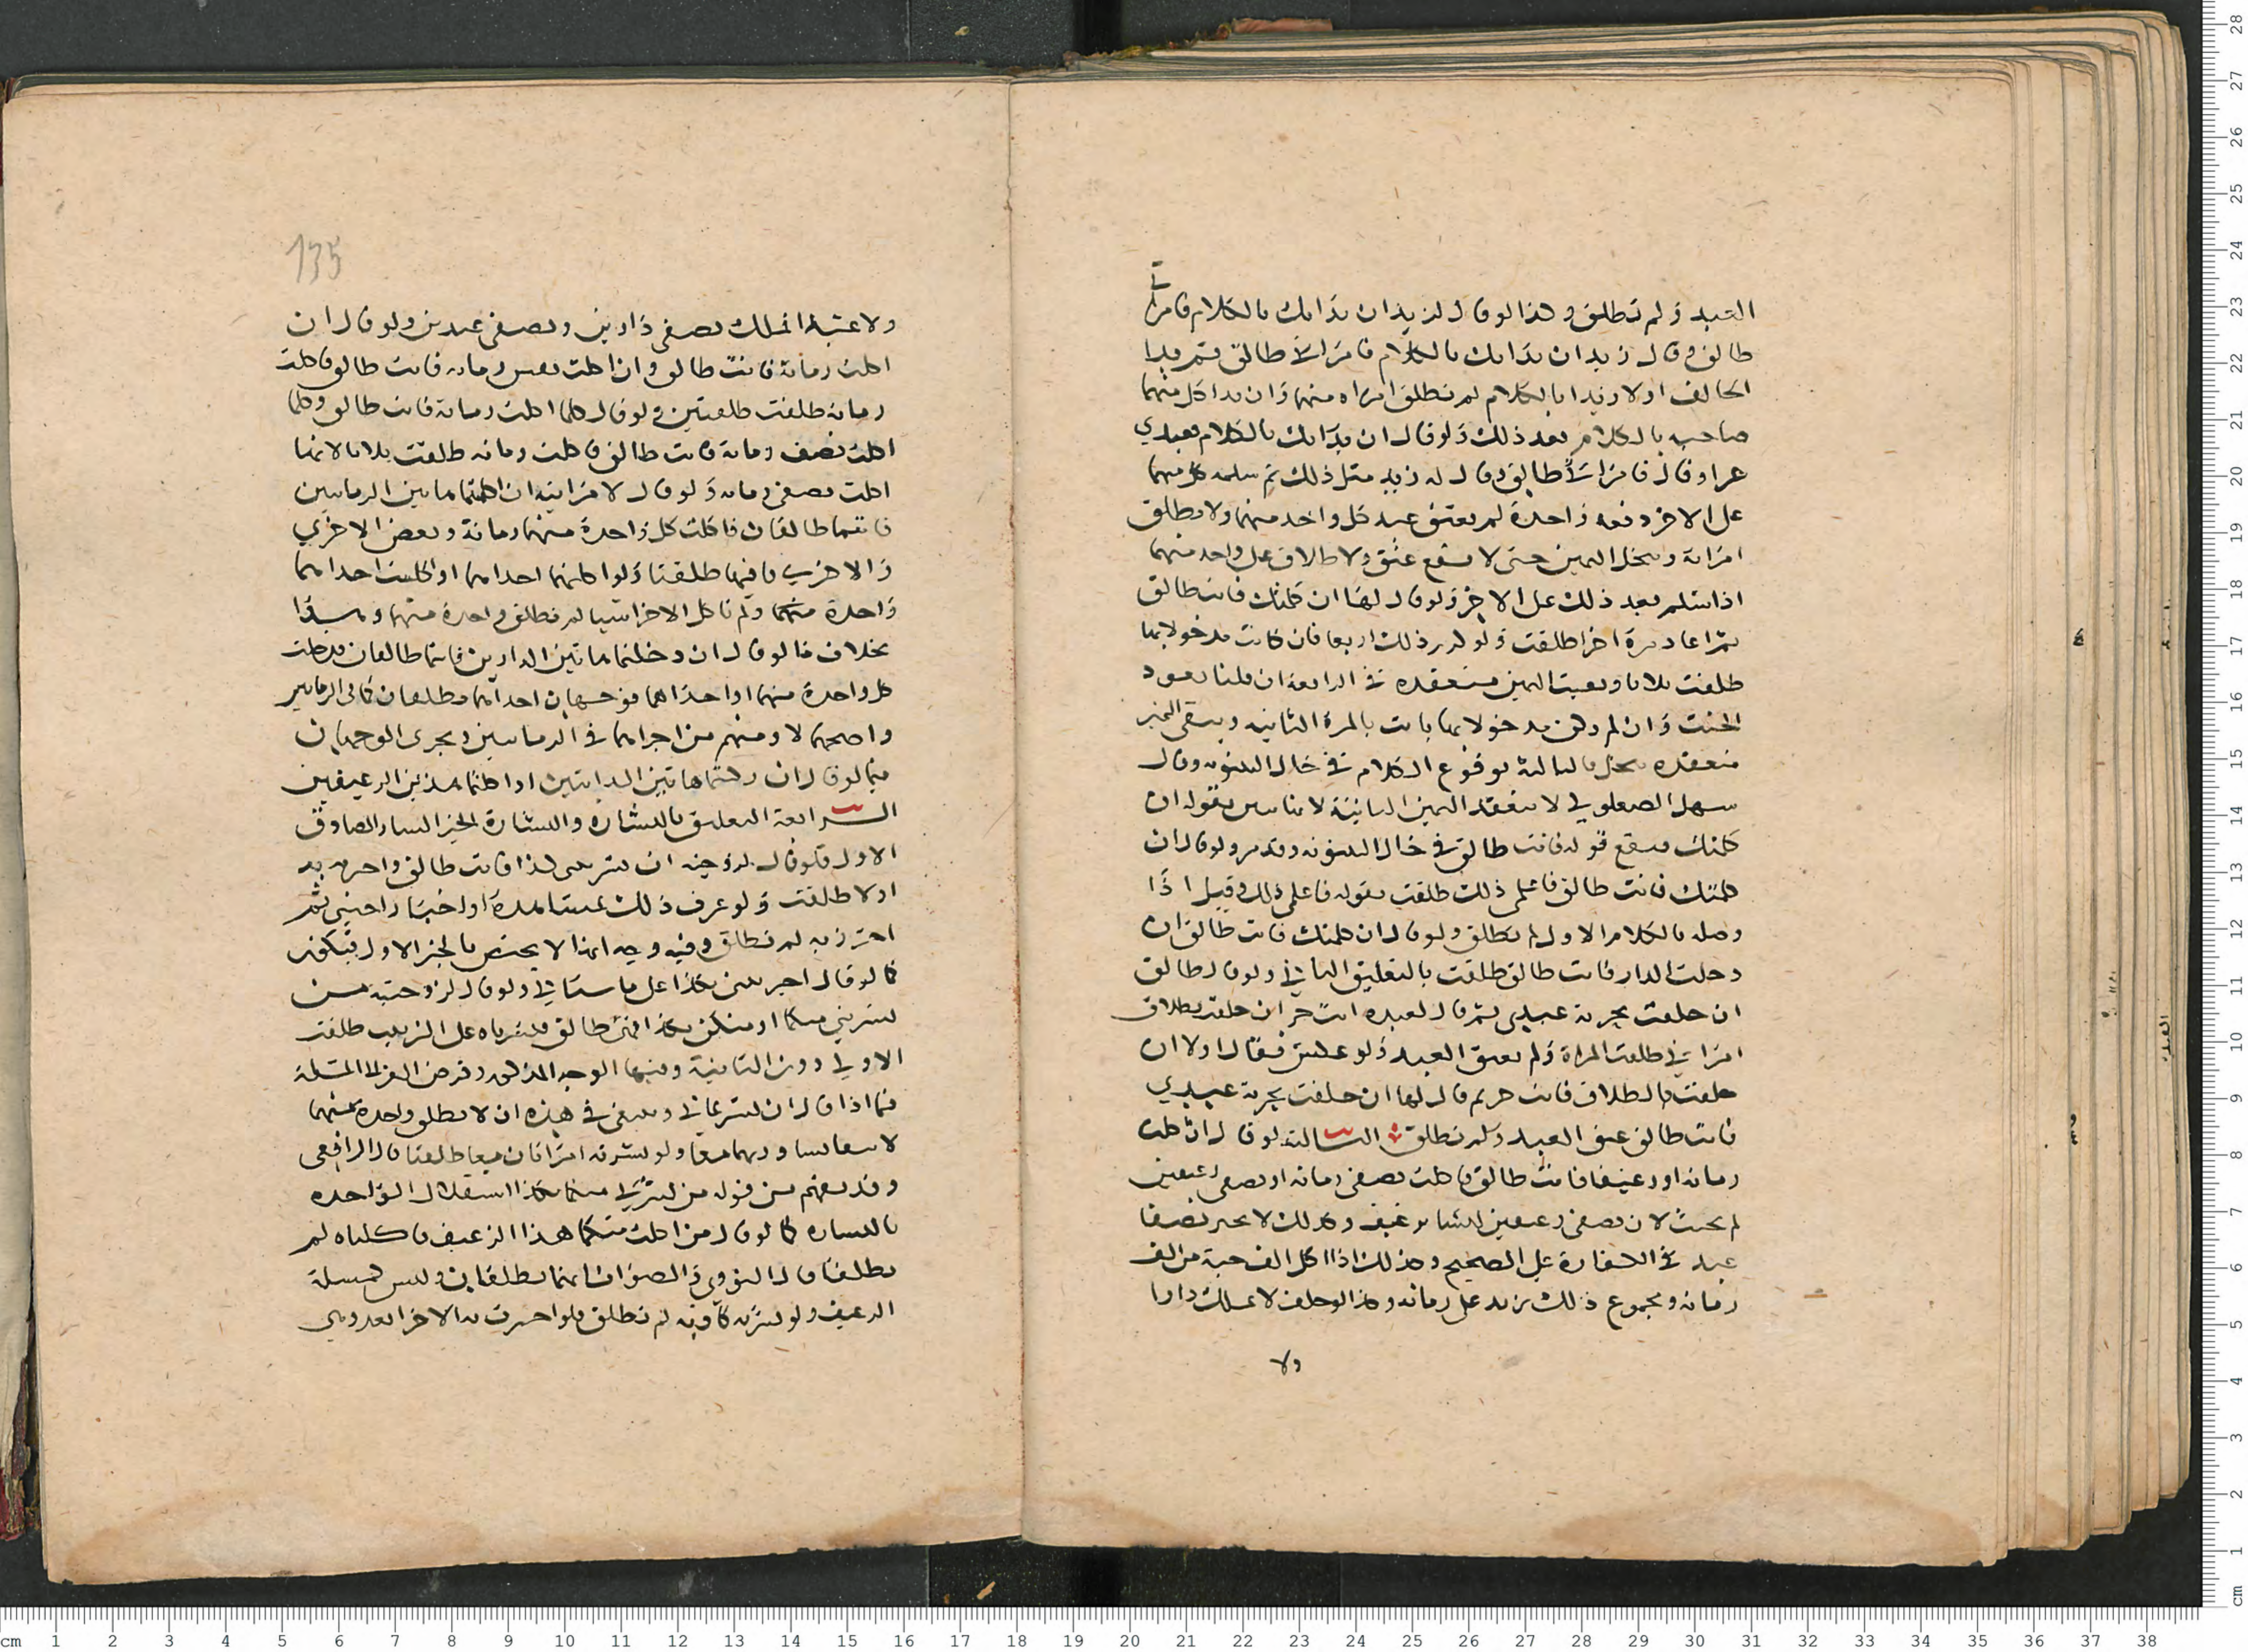 العبد ولم تطلق وكذا لو قال لزيد ان بدامك بالكلام فامراتي
طالق وقال زيد ان بدامك بالكلام فامراتي طالق ثم بدا
الحالف اولا زيدا بالكلام لم تطلق امراه منهما وان بدا كل منهما
صاحبه بالكلام بعد ذلك ولو قال ان بدامك بالكلام فعبدي
حر او قال فامراتي طالق وقال له زيد مثل ذلك ثم سلما كل منهما
على الاخر دفعه واحدة لم يعتق عبد كل واحد منهما ولا تطلق
امراته وينحل اليمين حتى لا يقع عتق ولا طلاق على واحد منهما
اذا سلم بعد ذلك على الاخر ولو قال لها ان كلمتك فانت طالق
ثم اعاد مرة اخرا طلقت ولو كرر ذلك اربعا فان كانت مدخولا بها
طلقت ثلاثا وبقيت اليمين منعقده في الرابعة ان قلنا بعود
الحنث وان لم يكن مدخولا بها بانت بالمرة الثانيه ويبقى اليمين
منعقده ينحل بالثالثة لوقوع الكلام في حال البينونه وقال
سهل الصعلوكي لا ينعقد اليمين الثانية لانها تبين بقوله ان
كلمتك فيقع قوله فانت طالق في حال البينونه وقد مر ولو قال ان
كلمتك فانت طالق فاعلمي ذلك طلقت بقوله فاعلمي ذلك وقيل اذا
وصله بالكلام الاول لم تطلق ولو قال ان كلمتك فانت طالق ان
دخلت الدار فانت طالق طلقت بالتعليق الثاني ولو قال طالق
ان حلفت بحرية عبدي ثم قال لعبده انت حر ان حلفت بطلاق
امراتي طلقت المراة ولم يعتق العبد ولو عكس فقال اولا ان
حلفت بالطلاق فانت حر ثم قال لها ان حلفت بحرية عبدي
فانت طالق عتق العبد ولم تطلق الثالثة لو قال ان اكلت
رمانه او رغيفا فانت طالق فاكلت نصفي رمانه او نصفي رغيفين
لم يحنث لان نصفي رغيفين ليسا برغيف وكذلك لا يجزي نصفا
عبد في الكفارة على الصحيح وكذلك اذا اكل الف حبة من الف
رمانه ومجموع ذلك يزيد على رمانه وكذا لو حلف لا يملك دارا
ولا
135
ولا عبدا فملك نصفي دارين ونصفي عبدين ولو قال ان
اكلت رمانة فانت طالق وان اكلت نصف رمانه فانت طالق فاكلت
رمانة طلقت طلقتين ولو قال كلما اكلت رمانة فانت طالق وكلما
اكلت نصف رمانة فانت طالق فاكلت رمانه طلقت ثلاثا لانها
اكلت نصفي رمانه ولو قال لامراتيه ان اكلتما هاتين الرمانتين
فانتما طالقان فاكلت كل واحدة منهما رمانة وبعض الاخرى
والاخرى باقيها طلقتا ولو اكلتهما احداهما او اكلت احداهما
واحدة منهما ولم تاكل الاخرا شيا لم تطلق واحدة منهما
بخلاف ما لو قال ان دخلتما هاتين الدارين فانتما طالقان فدخلت
كل واحدة منهما احداهما فوجهان احداهما تطلقان كما في الرمانتين
واصحهما لا ومنهم من اجراهما في الرمانتين ويجري الوجهان
فيما لو قال ان ركبتما هاتين الدابتين او اكلتما هذين الرغيفين
الرابعة التعليق بالبشاره والبشارة الخبر السار الصادق
الاول فلو قال لزوجته ان بشرتني بكذا فانت طالق واخبرته به
اولا طلقت ولو عرف ذلك بمشاهدة او اخبار اجنبي ثم
اخبرته به لم تطلق وفيه وجه انها لا يختص بالخبر الاول فيكون
كما لو قال اخبرتني بكذا على ما سياتي ولو قال لزوجتيه من
بشرتني منكما او منكن بكذا فهي طالق فبشرتاه على الترتيب طلقت
الاولى دون الثانية وفيها الوجه المذكور وفرض الغزالي المسئلة
فيما اذا قال ان بشرتماني وينبغي في هذه ان لا تطلق واحدة منهما
الا ببشارتهما معا ولو بشرته امراتان معا طلقتا قال الرافعي
وقد يفهم من قوله من بشرتني منكما بكذا استقلال الواحده
بالبشاره كما لو قال من اكلت منكما هذا الرغيف فاكلتاه لم
تطلقا قال النووي والصواب انهما تطلقان وليس كمسئلة
الرغيف ولو بشرته كاذبه لم تطلق فلو اخبرت به الاخرا بعد وهي